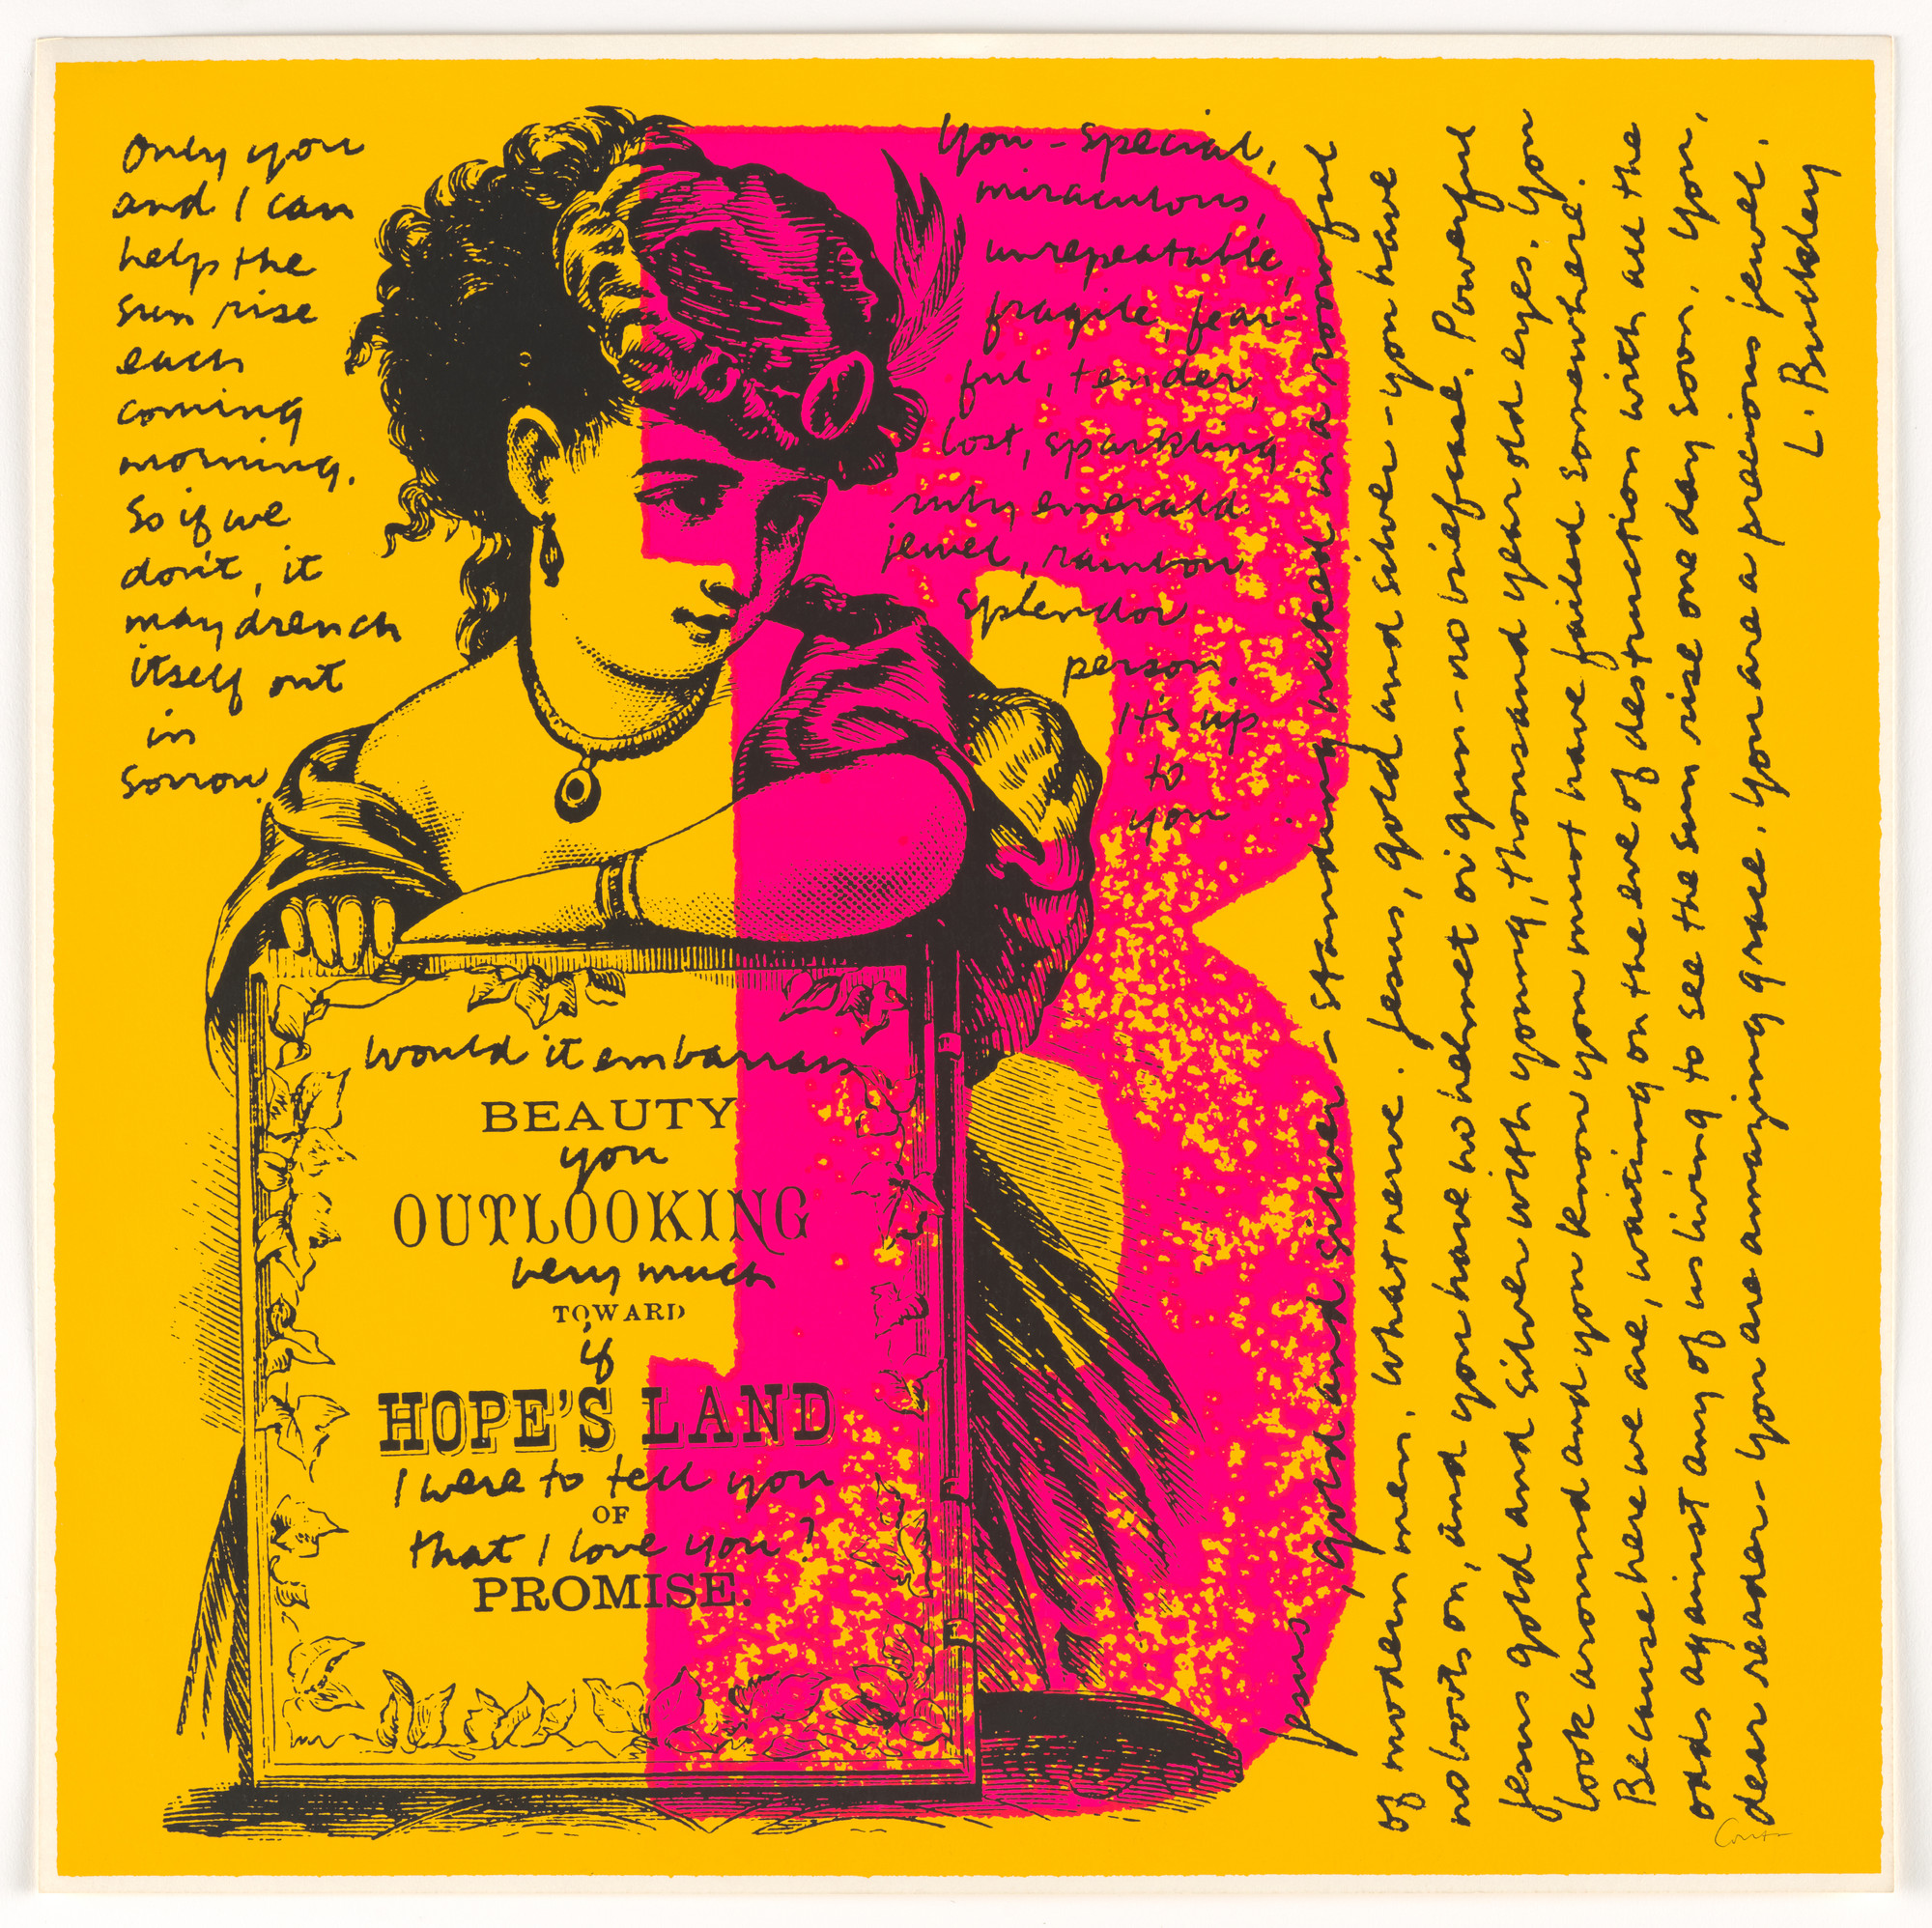 Only you
and I can
help the
sun rise
each
coming
morning.
So if we
don't, it
may drench
itself out
in
sorrow.
You - special,
miraculous,
unrepeatable,
fragile, fear-
ful, tender,
lost, sparkling
ruby emerald
jewel, rainbow
splendor
person.
It's up
to
you
would it embarrass
BEAUTY
you
OUTLOOKING
very much
TOWARD
if
HOPE'S LAND
I were to tell you
OF
that I love you?
PROMISE.
Jesus, gold and silver - standing naked in a roomful
of modern men. What nerve. Jesus, gold and silver - you have
no boots on, and you have no helmet or gun - no briefcase. Powerful
Jesus gold and silver with young, thousand year old eyes. You
look around and you know you must have failed somewhere.
Because here we are, waiting on the eve of destruction with all the
odds against any of us living to see the sun rise one day soon. You,
dear reader - you are amazing grace. You are a precious jewel.
L. Bulkley
Corita